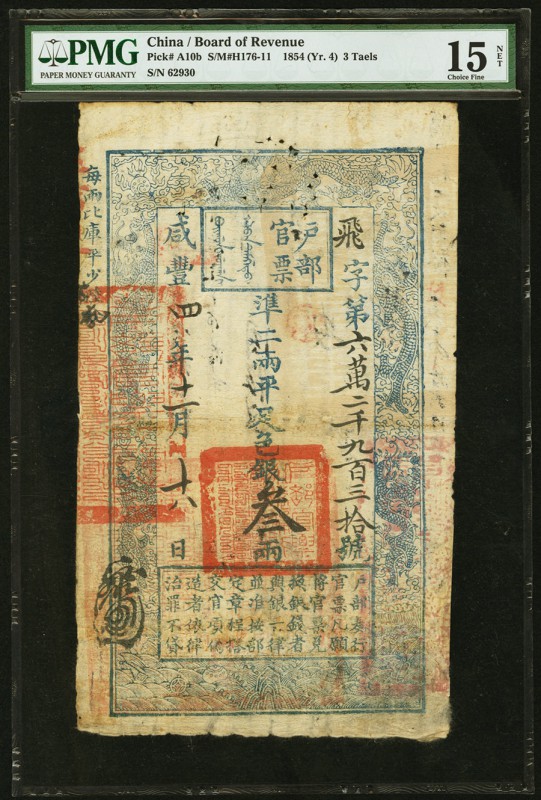 PMG
PAPER MONEY GUARANTY
China / Board of Revenue
Pick# A10b S/M#H176-11 1854 (Yr. 4) 3 Taels
S/N 62930
15
NET
Choice Fine
戶部
官票
飛字第六萬二千九百三拾號
準二兩平足色銀叁兩
咸豐四年十一月十八日
每兩比庫平少
戶部奏行
官票凡願
將官票兌
換銀錢者
與銀一律
並准按部
定章程搭
交官項偽
造者依律
治罪不貸